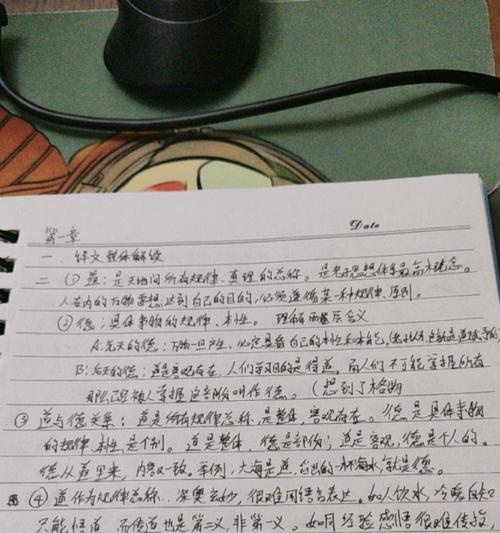 第一章
Date
一、释文整体解读
二 ①道:是天地间所有规律、真理的总称。是老子思想体系最高概念。
人在内的万物要想达到自己的目的,必须遵循某一种规律、原则。
②德:具体事物的规律、本性。 理解两层含义
A:先天的德:万物一旦产生,必定具备自己的本性和本能,
B:后天的德:道是客观存在,人们学习目的是得道。而人们不可能掌握所有
那么已被人掌握这部分叫作德。(想到了格物
③道与德关系:道是所有规律总称,是整体,客观存在。德是具体事物
的规律、本性,是个别。道是整体,德是部份;道是客观,德是个人的。
德从道里来,内容又一致。举例:大海是道,舀出的一杯海水就是德。
④道作为规律总称,深奥玄妙,很难用语言表达。如人饮水,冷暖自知
只能悟道,而传道也是第二义,非第一义。如同经验感悟很难传授,